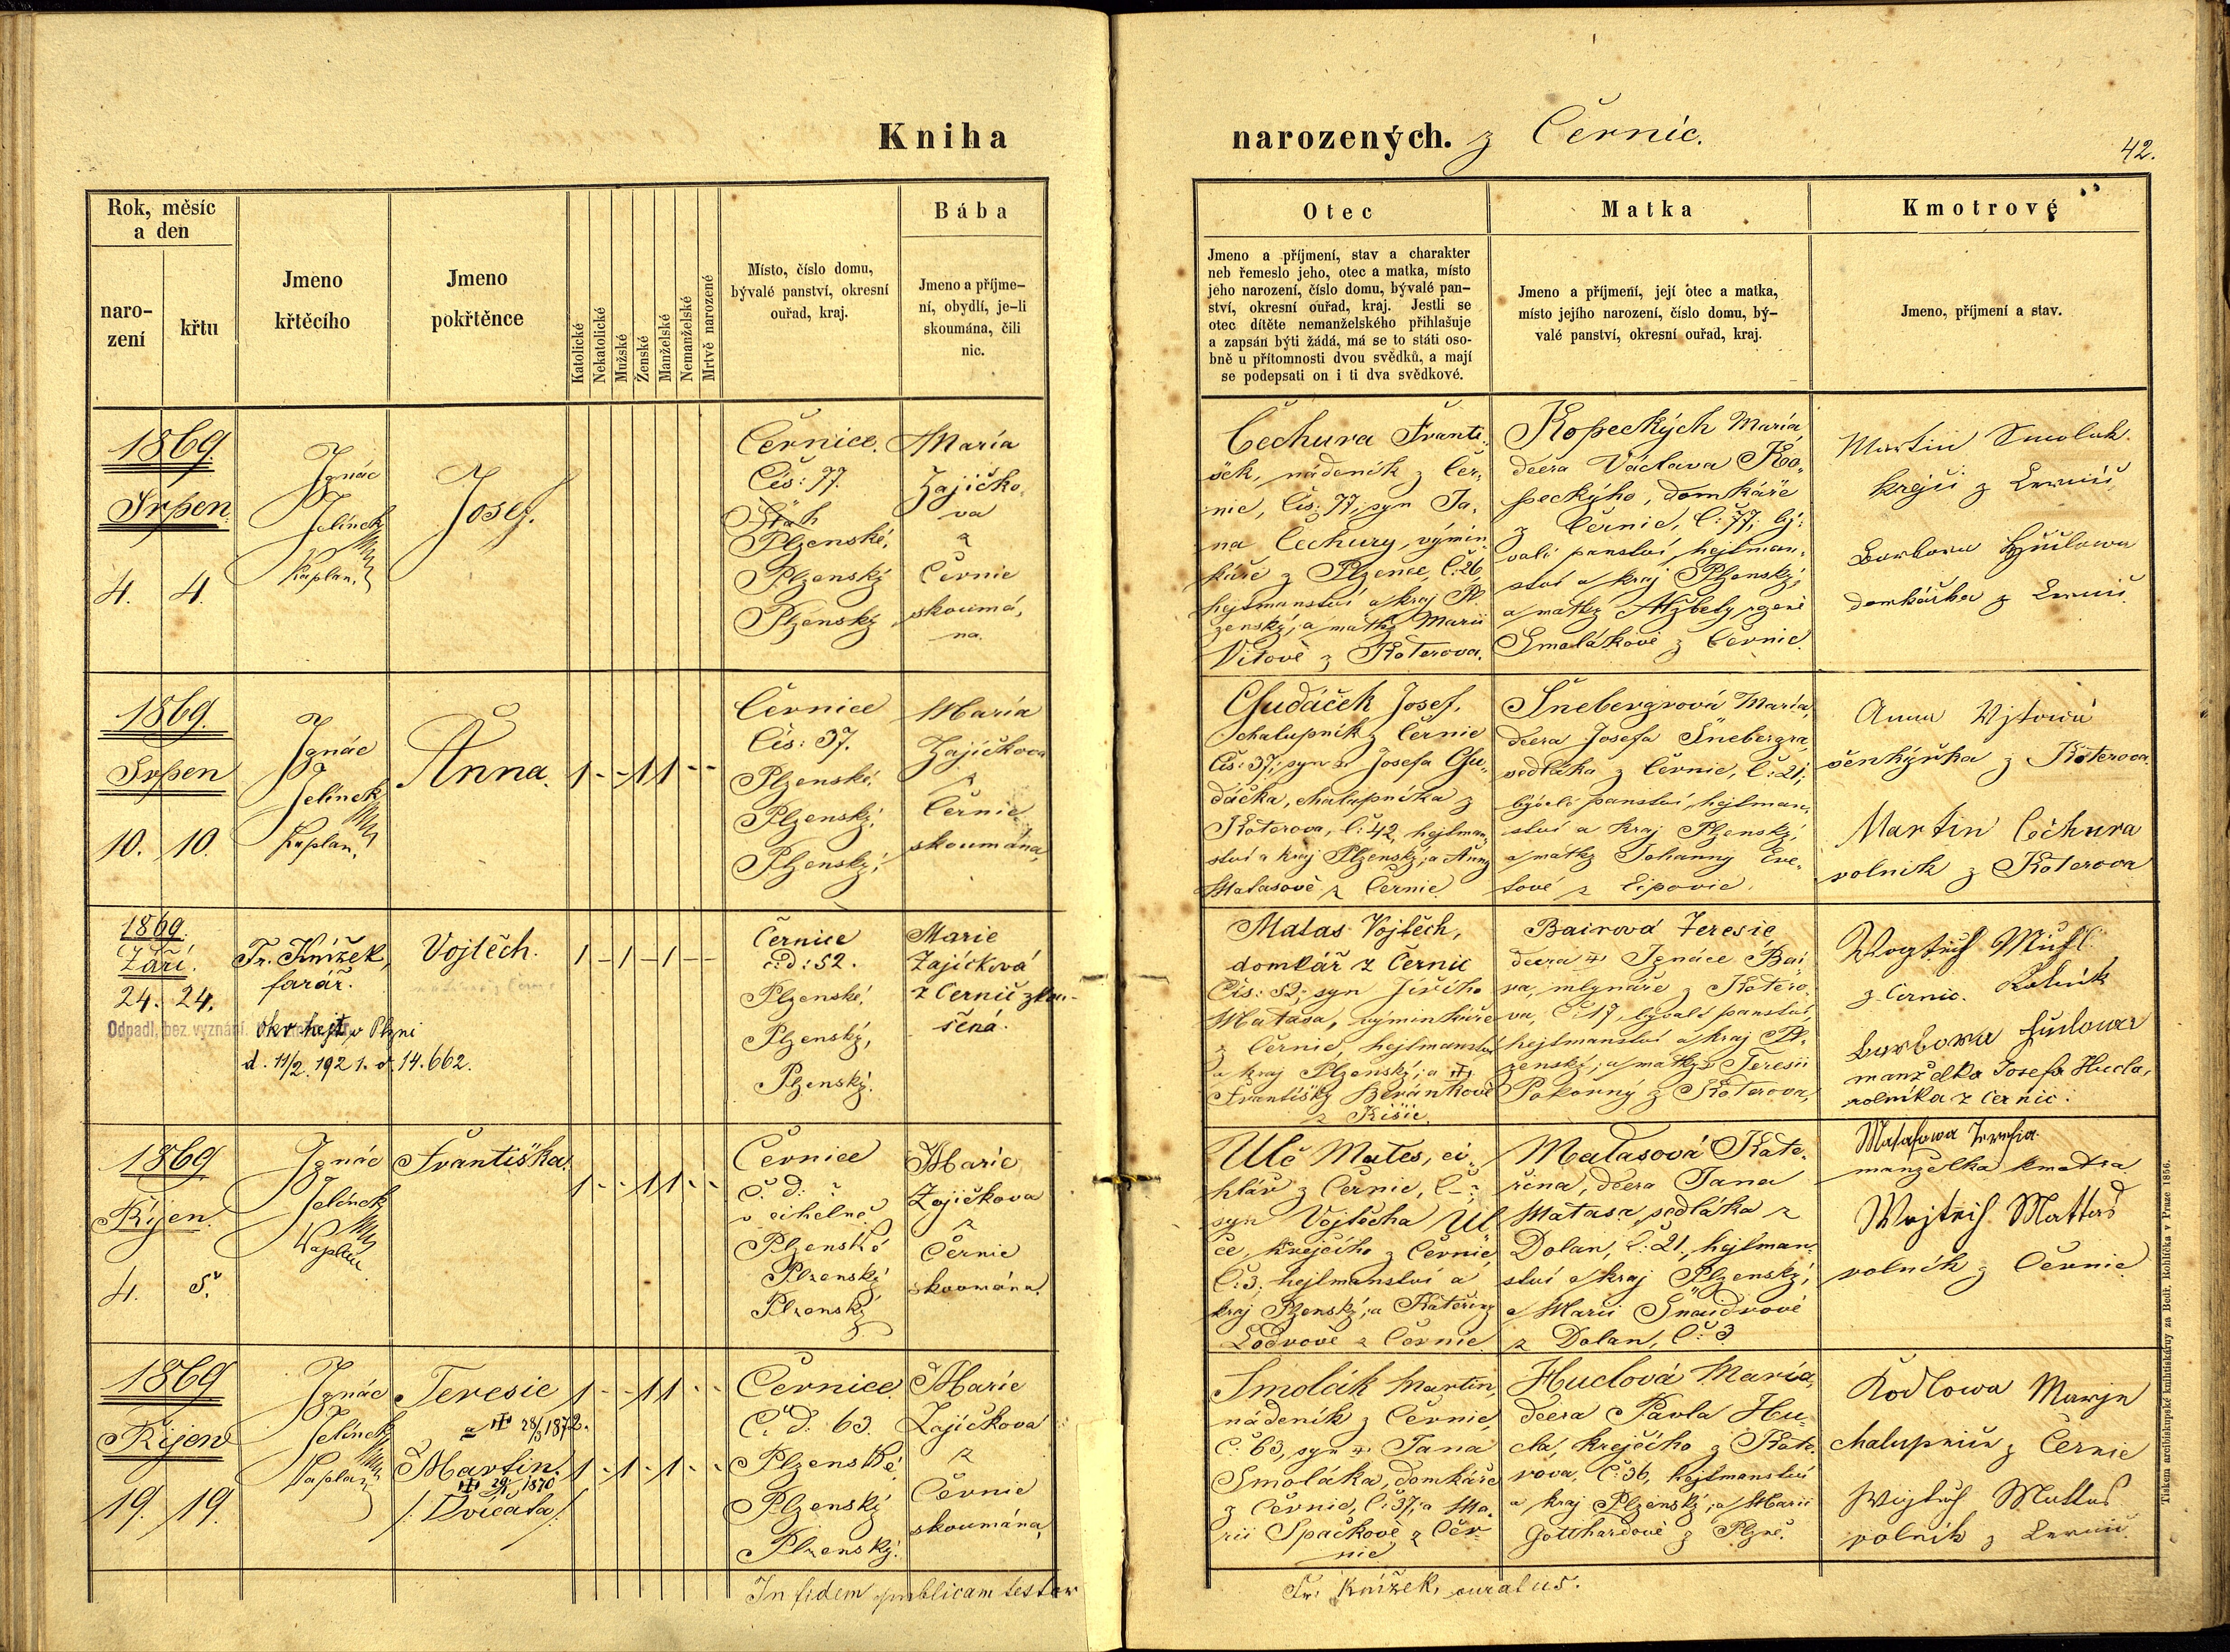 Kniha
narozených. z Černic.
42.
Rok, měsíc
a den
naro-
zení
křtu
Jmeno
křtěcího
Jmeno
pokřtěnce
Katolické
Nekatolické
Mužské
Ženské
Manželské
Nemanželské
Mrtvě narozené
Místo, číslo domu,
bývalé panství, okresní
ouřad, kraj.
Bába
Jmeno a příjme-
ní, obydlí, je-li
skoumána, čili
nic.
Otec
Jmeno a příjmení, stav a charakter
neb řemeslo jeho, otec a matka, místo
jeho narození, číslo domu, bývalé pan-
ství, okresní ouřad, kraj. Jestli se
otec dítěte nemanželského přihlašuje
a zapsán býti žádá, má se to státi oso-
bně u přítomnosti dvou svědků, a mají
se podepsati on i ti dva svědkové.
Matka
Jmeno a příjmení, její otec a matka,
místo jejího narození, číslo domu, bý-
valé panství, okresní ouřad, kraj.
Kmotrové
Jmeno, příjmení a stav.
1869.
Srpen.
4. 4.
Ignác
Jelínek
Kaplan.
Josef.
Černice.
Čís: 77.
Plzenské,
Plzenský
Plzenský
Maria
Zajíčko-
va
z
Černic
skoumá,
na.
Čechura Franti-
šek, nádeník z Čer,
nic, Čís: 77, syn Ja,
na Čechury, výmin
káře z Plzence, Č: 26,
hejtmanství a kraj Pl
zenský; a matky Marii
Vítově z Koterova.
Kopeckých Maria
dcera Václava Ko,
peckýho, domkáře
z Černic, Č: 77, bý-
valé panství, hejtman,
ství a kraj Plzenský;
a matky Alžbety rozené
Smolákové z Černic.
Martin Smolak.
krejčí z Černic
Barbora Hudlowa
domkářka z Černic.
1869.
Srpen
10. 10.
Ignác
Jelínek
Kaplan,
Anna. 1 - - 1 1 - -
Černice
Čís: 37.
Plzenské.
Plzenský,
Plzenský,
Maria
Zajíčkova
z
Černic
skoumána,
Chudáček Josef,
chalupník z Černic
Čís: 37; syn Josefa Chu-
dáčka, chalupníka z
Koterova, Č: 42, hejtman,
ství a kraj Plzenský; a Anny
Matasově z Černic
Šnebergrová Maria,
dcera Josefa Šnebergra
sedláka z Černic, Č: 21;
bývalé panství, hejtman,
ství a kraj Plzenský,
a matky Johanny
z Lipovic.
Anna Wjtowa
šenkýřka z Koterova.
Martin Čechura
rolník z Koterova
1869.
Září.
24. 24.
Fr. Knížek,
farář.
Vojtěch. 1 - 1 - 1 - -
Odpadl, bez vyznání. Okr hejt. v Plzni
d. 11/2. 1921. č. 14.662.
Černice
č: d: 52.
Plzenské,
Plzenský,
Plzenský.
Marie
Zajíčková
z Černic zkou-
šená.
Matas Vojtěch,
domkář z Černic
Čís: 52; syn Jiřího
Matasa, výminkáře
z Černic, hejtmanství
a kraj Plzenský; a
Františky Beránkové
z Kišic.
Bairová Teresie
dcera Ignáce Bai-
ra, mlynáře z Kotero
va, Č: 17, bývalé panství,
hejtmanství a kraj Pl-
zenský; a matky Teresii
Pokorný z Koterova,
z Černic. Rolník
Barbora Hudlowa
manželka Josefa Hucla,
rolníka z Černic.
1869
Říjen.
4. 5.
Ignác
Jelínek
Kaplan
Františka. 1 - - 1 1 - -
Černice
Č. d: ?
v cihelně
Plzenské
Plzenský
Plzenský
Marie
Zajíčkova
z
Černic
skoumána.
Ulč Mates, ci-
hlář z Černic, Č - ;
syn Vojtěcha Ul
če, krejčího z Černic,
Č: 3, hejtmanství a
kraj Plzenský; a Kateřiny
Lodrově z Černic.
Matasová Kate-
řina, dcera Jana
Matasa, sedláka z
Dolan, Č: 21, hejtman,
ství a kraj Plzenský,
a Marii Šnaidrové
z Dolan, Č: 3
Matasowa Teresia
manželka kmotra
Wojtěch Mattas
rolník z Černic
1869
Říjen
19. 19.
Ignác
Jelínek
Kaplan
Teresie 1 - - 1 1 - -
28/3 1872.
Martin. 1 - 1 - 1 - -
1870
/: Dvojčata :/
Černice.
Č. d: 63.
Plzenské,
Plzenský
Plzenský.
Marie
Zajíčkova
z
Černic
skoumána,
Smolák Martin,
nádeník z Černic,
Č: 63, syn Jana
Smoláka, domkáře
z Černic, Č: 37; a Ma,
rii Špačkově z Čer-
nic
Huclová Maria,
dcera Pavla Hu-
cla, krejčího z Kote-
rova, Č: 36, hejtmanství
a kraj Plzenský; a Marii
Gotthardové z Plzně.
Kodlowa Marje
chalupnice z Černic
Wojtěch Mattas
rolník z Černic.
In fidem publicam testor
Fr. Knížek, curatus.
Tiskem arcibiskupské knihtiskárny za Bedř. Rohlíčka v Praze 1856.